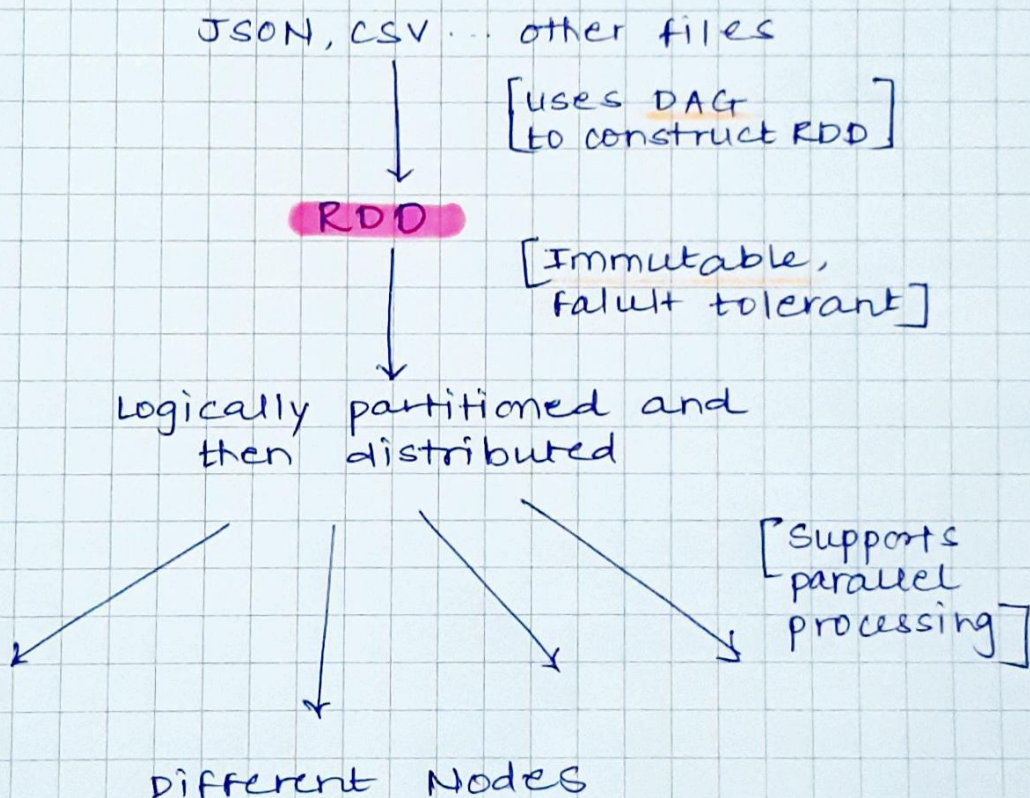 JSON, CSV... other files
[uses DAG
to construct RDD]
RDD
[Immutable,
Falult tolerant]
Logically partitioned and
then distributed
[Supports
parallel
processing]
Different Nodes